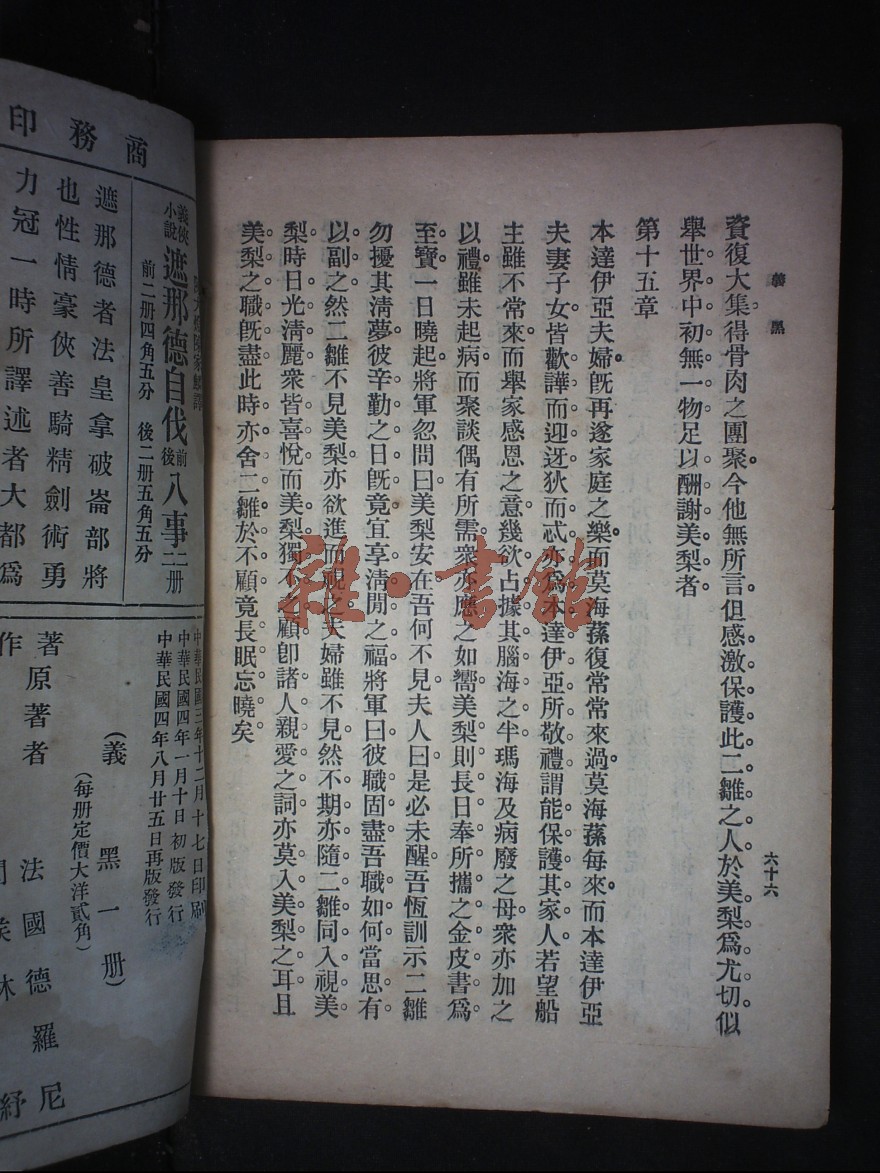 義黑
六十六
資復大集得骨肉之團聚今他無所言但感激保護此二雛之人於美梨為尤切似
舉世界中初無一物足以酬謝美梨者
第十五章
本達伊亞夫婦旣再遂家庭之樂而莫海蓀復常常來過莫海蓀每來而本達伊亞
夫妻子女皆歡譁而迎迓狄而忒亦為本達伊亞所敬禮謂能保護其家人若望船
主雖不常來而舉家感恩之意幾欲占據其腦海之半瑪海及病廢之母衆亦加之
以禮雖未起病而聚談偶有所需衆亦應之如嚮美梨則長日奉所攜之金皮書為
至寶一日曉起將軍忽問曰美梨安在吾何不見夫人曰是必未醒吾恆訓示二雛
勿擾其清夢彼辛勤之日旣竟宜享清閒之福將軍曰彼職固盡吾職如何當思有
以副之然二雛不見美梨亦欲進而視之夫婦雖不見然不期亦隨二雛同入視美
梨時日光清麗衆皆喜悅而美梨獨不之顧卽諸人親愛之詞亦莫入美梨之耳且
美梨之職旣盡此時亦舍二雛於不顧竟長眠忘曉矣
雜·書館
商務印
義俠小說 遮那德自伐前後八事二册
前二册四角五分 後二册五角五分
遮那德者法皇拿破崙部將
也性情豪俠善騎精劍術勇
力冠一時所譯述者大都為
中華民國三年十二月十七日印刷
中華民國四年一月十日初版發行
中華民國四年八月廿五日再版發行
(義黑一册)
(每册定價大洋貳角)
著作
原著者 法國德羅尼
紓